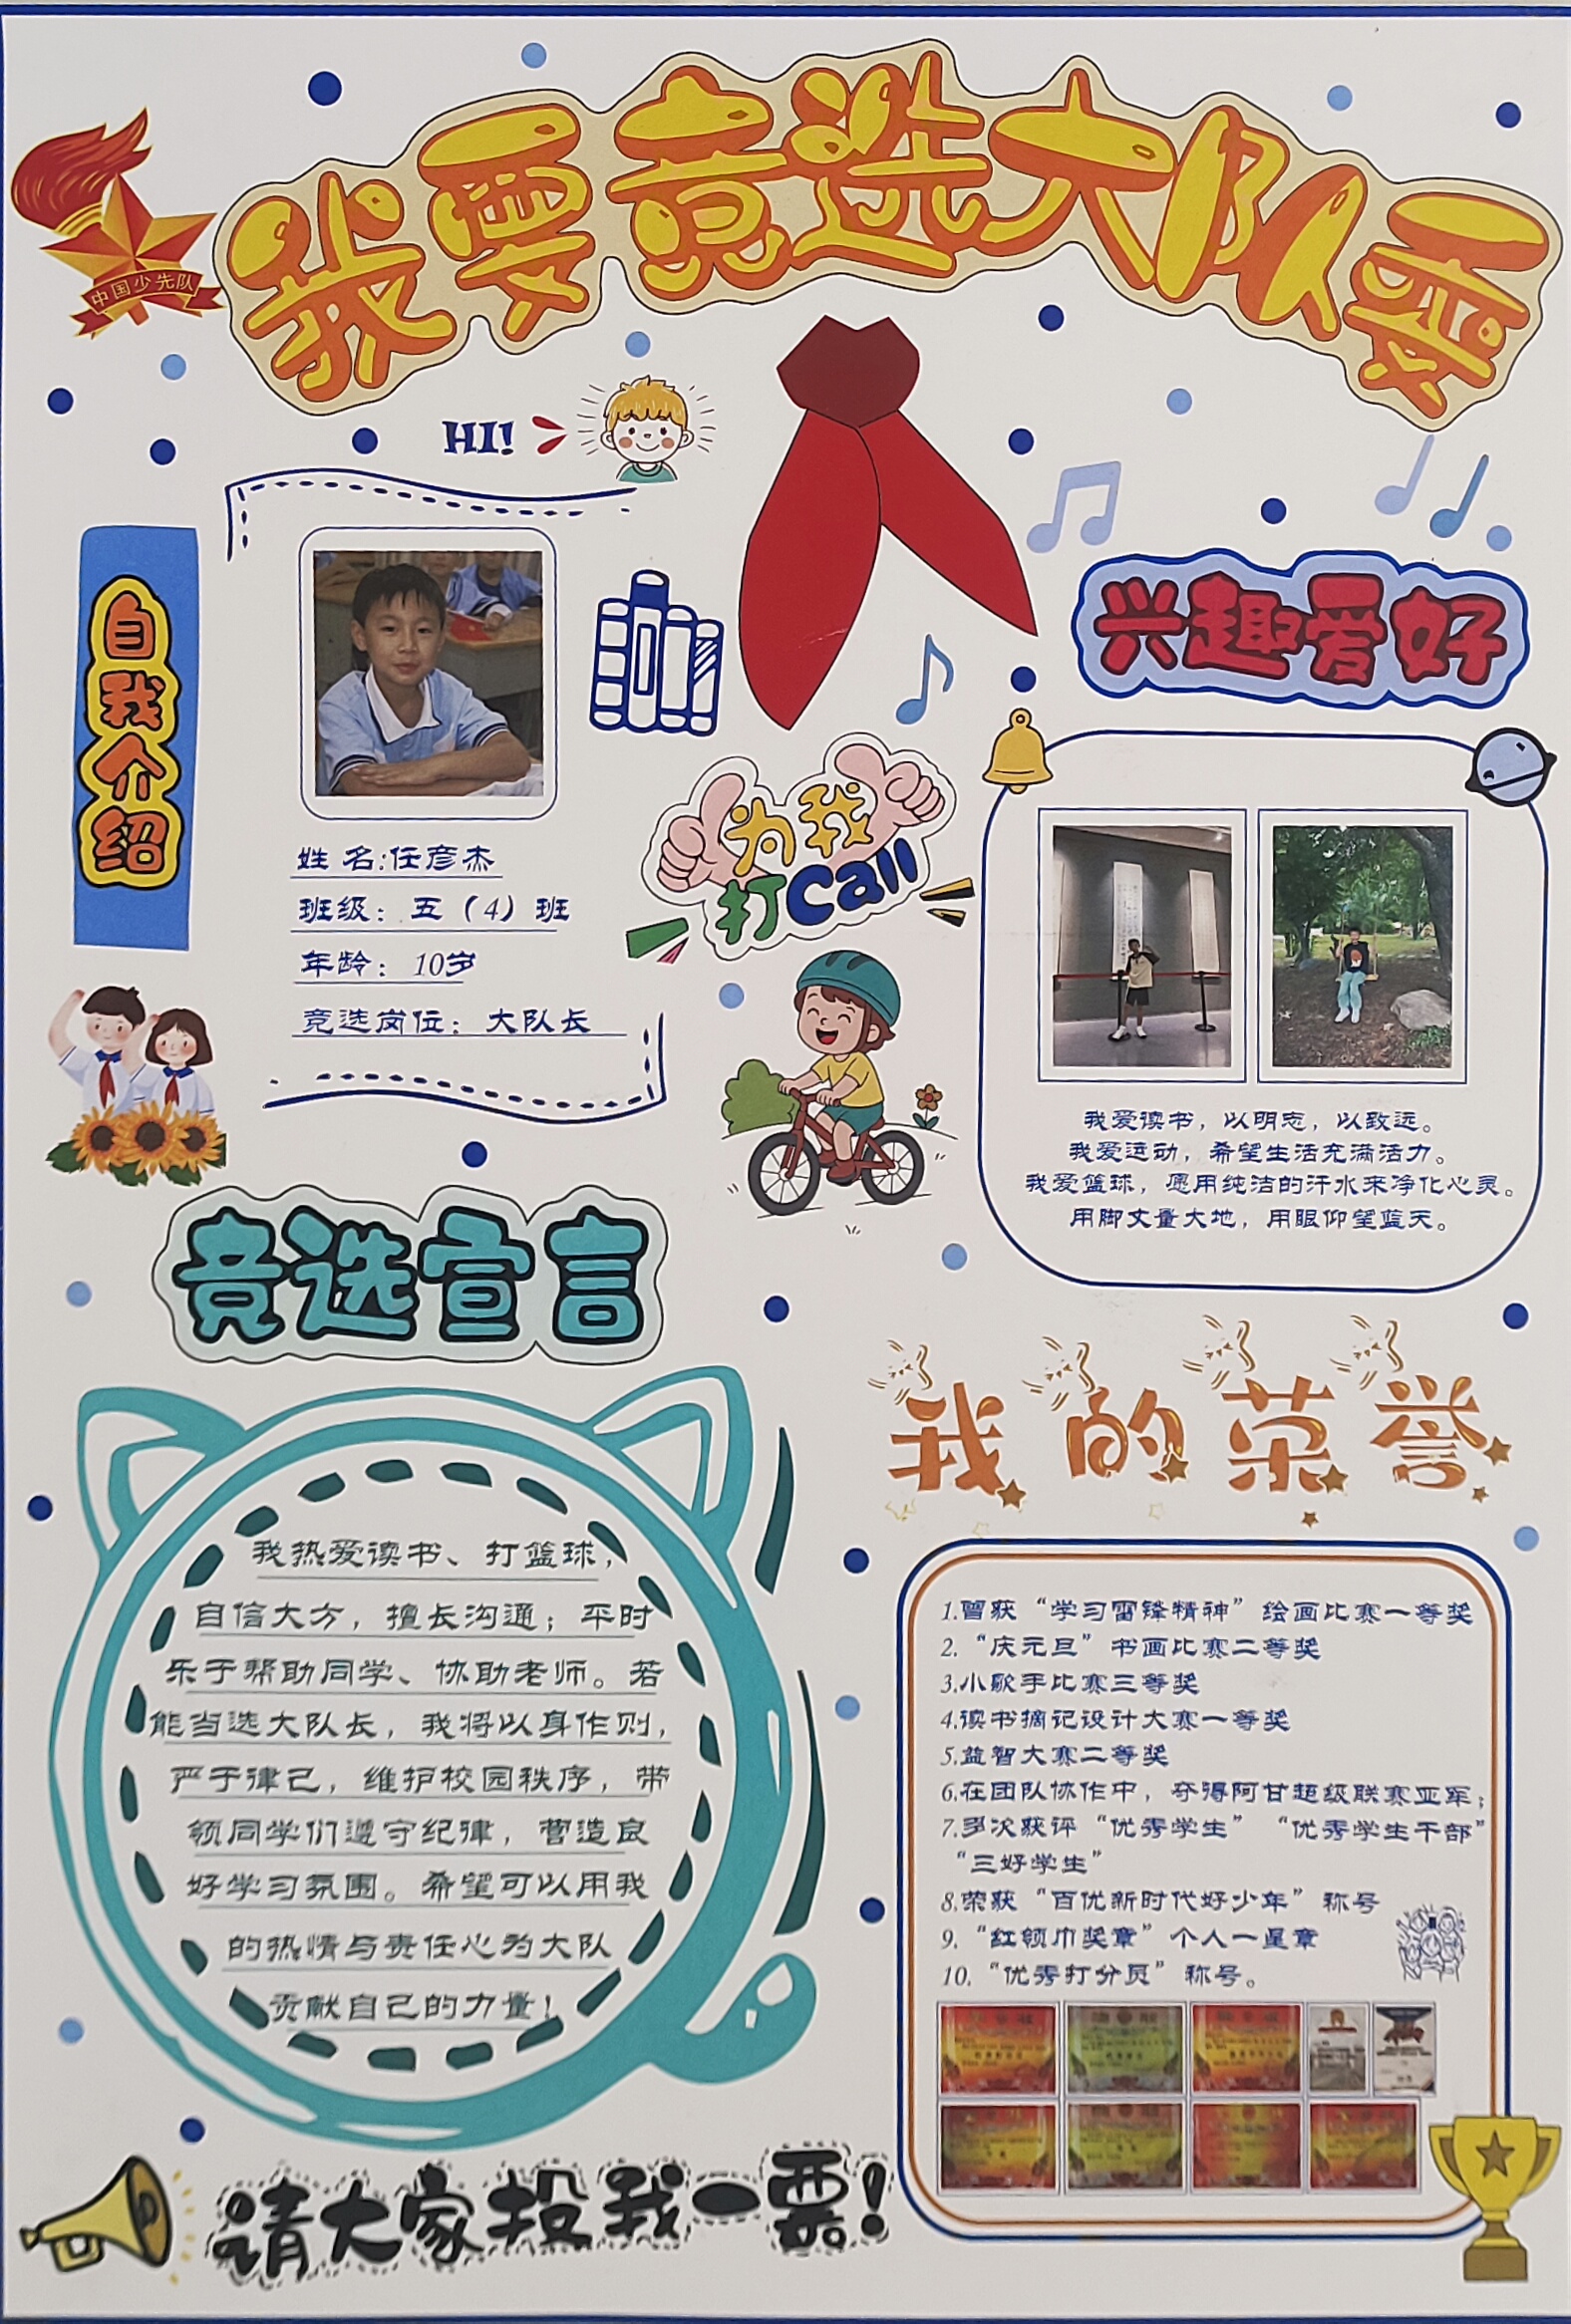 我要竞选大队委
中国少先队
HI!
自我介绍
姓 名:任彦杰
班级：五（4）班
年龄：10岁
竞选岗位：大队长
为我
打Call
兴趣爱好
我爱读书，以明志，以致远。
我爱运动，希望生活充满活力。
我爱篮球，愿用纯洁的汗水来净化心灵。
用脚丈量大地，用眼仰望蓝天。
竞选宣言
我热爱读书、打篮球，
自信大方，擅长沟通；平时
乐于帮助同学、协助老师。若
能当选大队长，我将以身作则，
严于律己，维护校园秩序，带
领同学们遵守纪律，营造良
好学习氛围。希望可以用我
的热情与责任心为大队
贡献自己的力量！
我的荣誉
1.曾获“学习雷锋精神”绘画比赛一等奖
2.“庆元旦”书画比赛二等奖
3.小歌手比赛三等奖
4.读书摘记设计大赛一等奖
5.益智大赛二等奖
6.在团队协作中，夺得阿甘超级联赛亚军；
7.多次获评“优秀学生”“优秀学生干部”
“三好学生”
8.荣获“百优新时代好少年”称号
9.“红领巾奖章”个人一星章
10.“优秀打分员”称号。
请大家投我一票！